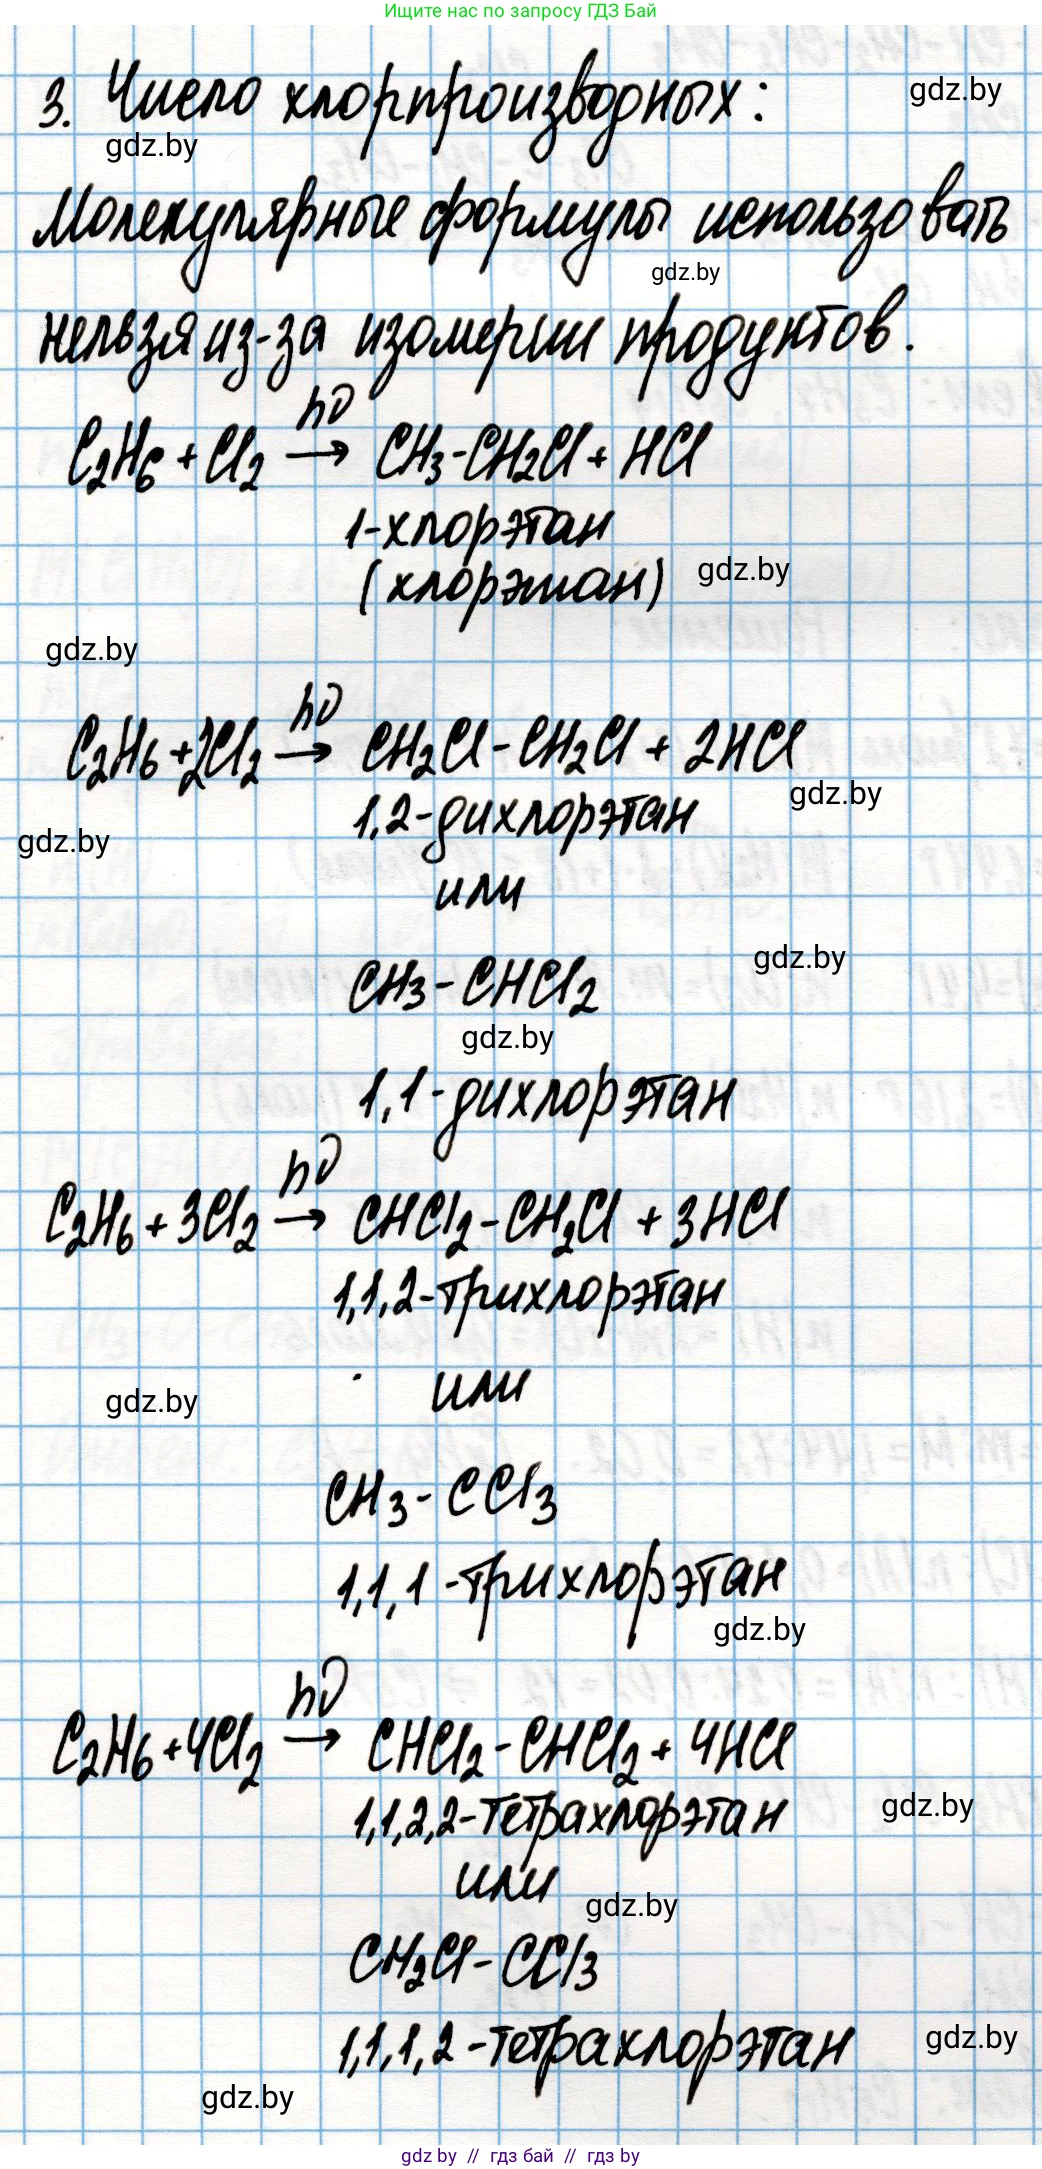 Ищите нас по запросу ГДЗ Бай
3. Число хлорпроизводных:
gdz.by
gdz.by
Молекулярные формулы использовать
gdz.by
нельзя из-за изомерии продуктов.
hν
C₂H₆ + Cl₂ → CH₃-CH₂Cl + HCl
1-хлорэтан
(хлорэтан)
gdz.by
gdz.by
hν
C₂H₆ + 2Cl₂ → CH₂Cl-CH₂Cl + 2HCl
gdz.by
1,2-дихлорэтан
gdz.by
или
gdz.by
CH₃-CHCl₂
gdz.by
1,1-дихлорэтан
hν
C₂H₆ + 3Cl₂ → CHCl₂-CH₂Cl + 3HCl
1,1,2-трихлорэтан
или
gdz.by
CH₃-CCl₃
1,1,1-трихлорэтан
gdz.by
hν
C₂H₆ + 4Cl₂ → CHCl₂-CHCl₂ + 4HCl
1,1,2,2-тетрахлорэтан
gdz.by
или
gdz.by
CH₂Cl-CCl₃
1,1,1,2-тетрахлорэтан
gdz.by
gdz.by
gdz.by // гдз бай // гдз by